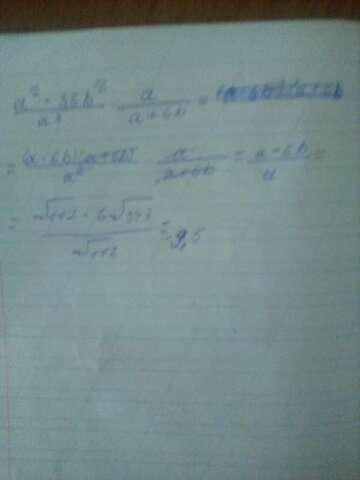 a² - 36b² / a² · a / a + 6b =
= (a - 6b)(a + 6b) / a² · a / a + 6b = a - 6b / a =
= √112 - 6√343 / √112 = -9,5